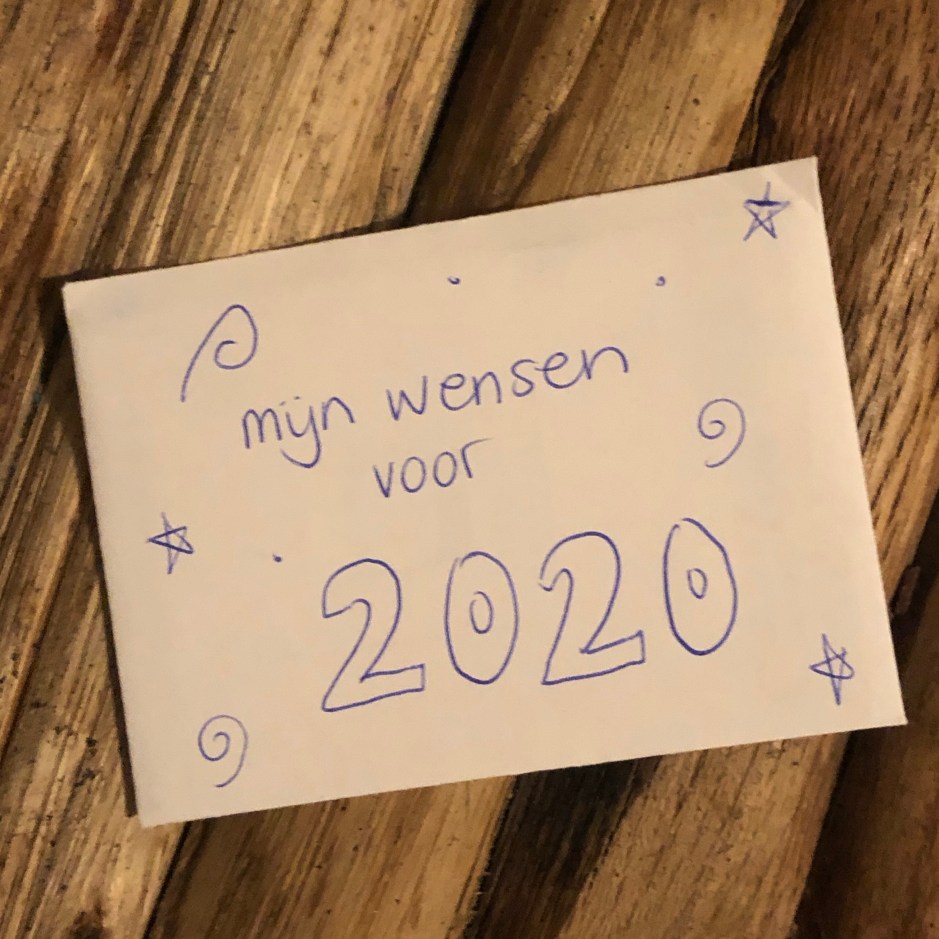 mijn wensen
voor
2020